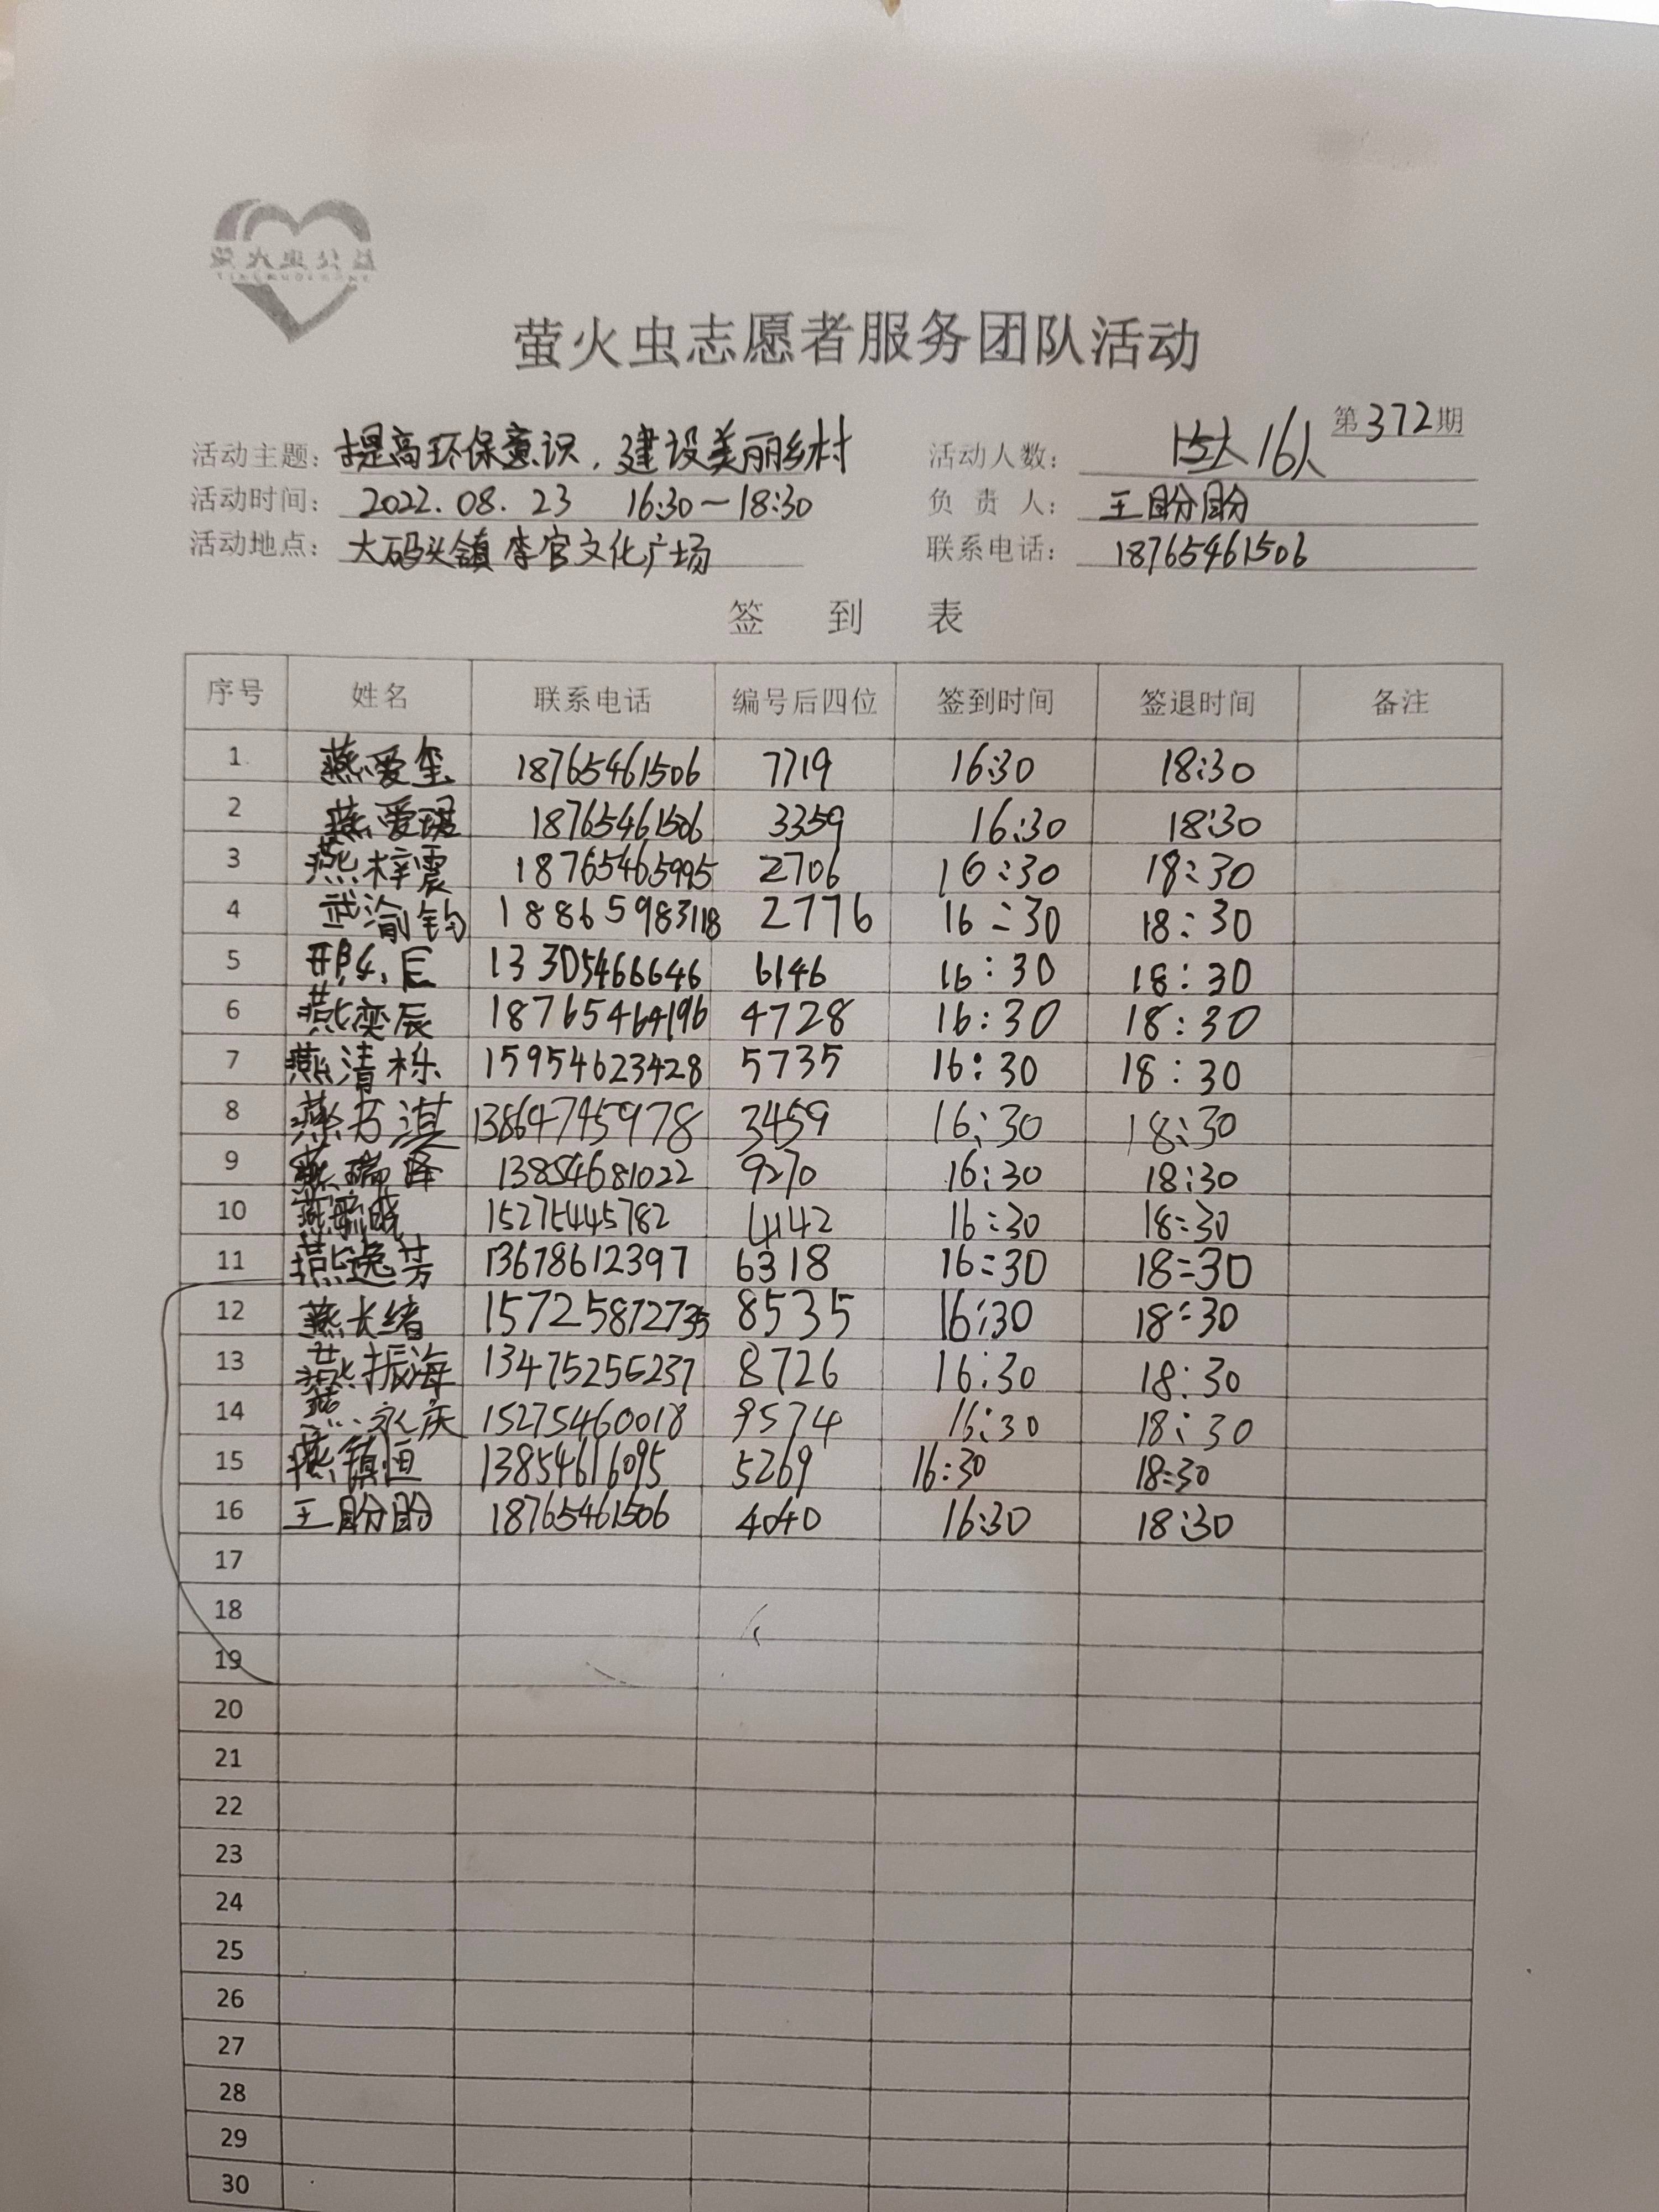 萤火虫公益
萤火虫志愿者服务团队活动
第372期
活动主题：提高环保意识，建设美丽乡村 活动人数：16人
活动时间：2022.08.23 16:30—18:30 负责人：王盼盼
活动地点：大码头镇李官文化广场 联系电话：18765461506
签到表
序号 姓名 联系电话 编号后四位 签到时间 签退时间 备注
1 燕爱玺 18765461506 7719 16:30 18:30
2 燕爱琚 18765461506 3359 16:30 18:30
3 燕梓震 18765465995 2706 16:30 18:30
4 武渝钧 18865983118 2776 16:30 18:30
5 13305466646 6146 16:30 18:30
6 燕奕辰 18765464196 4728 16:30 18:30
7 燕清栎 15954623428 5735 16:30 18:30
8 淇 13864745978 3459 16:30 18:30
9 燕瑞泽 13854681022 9270 16:30 18:30
10 燕 晓 15275445782 4142 16:30 18:30
11 燕逸芳 13678612397 6318 16:30 18:30
12 燕长绪 15725872735 8535 16:30 18:30
13 燕振海 13475256237 8726 16:30 18:30
14 燕永庆 15275460018 9574 16:30 18:30
15 燕镇恒 13854616095 5269 16:30 18:30
16 王盼盼 18765461506 4040 16:30 18:30
17
18
19
20
21
22
23
24
25
26
27
28
29
30